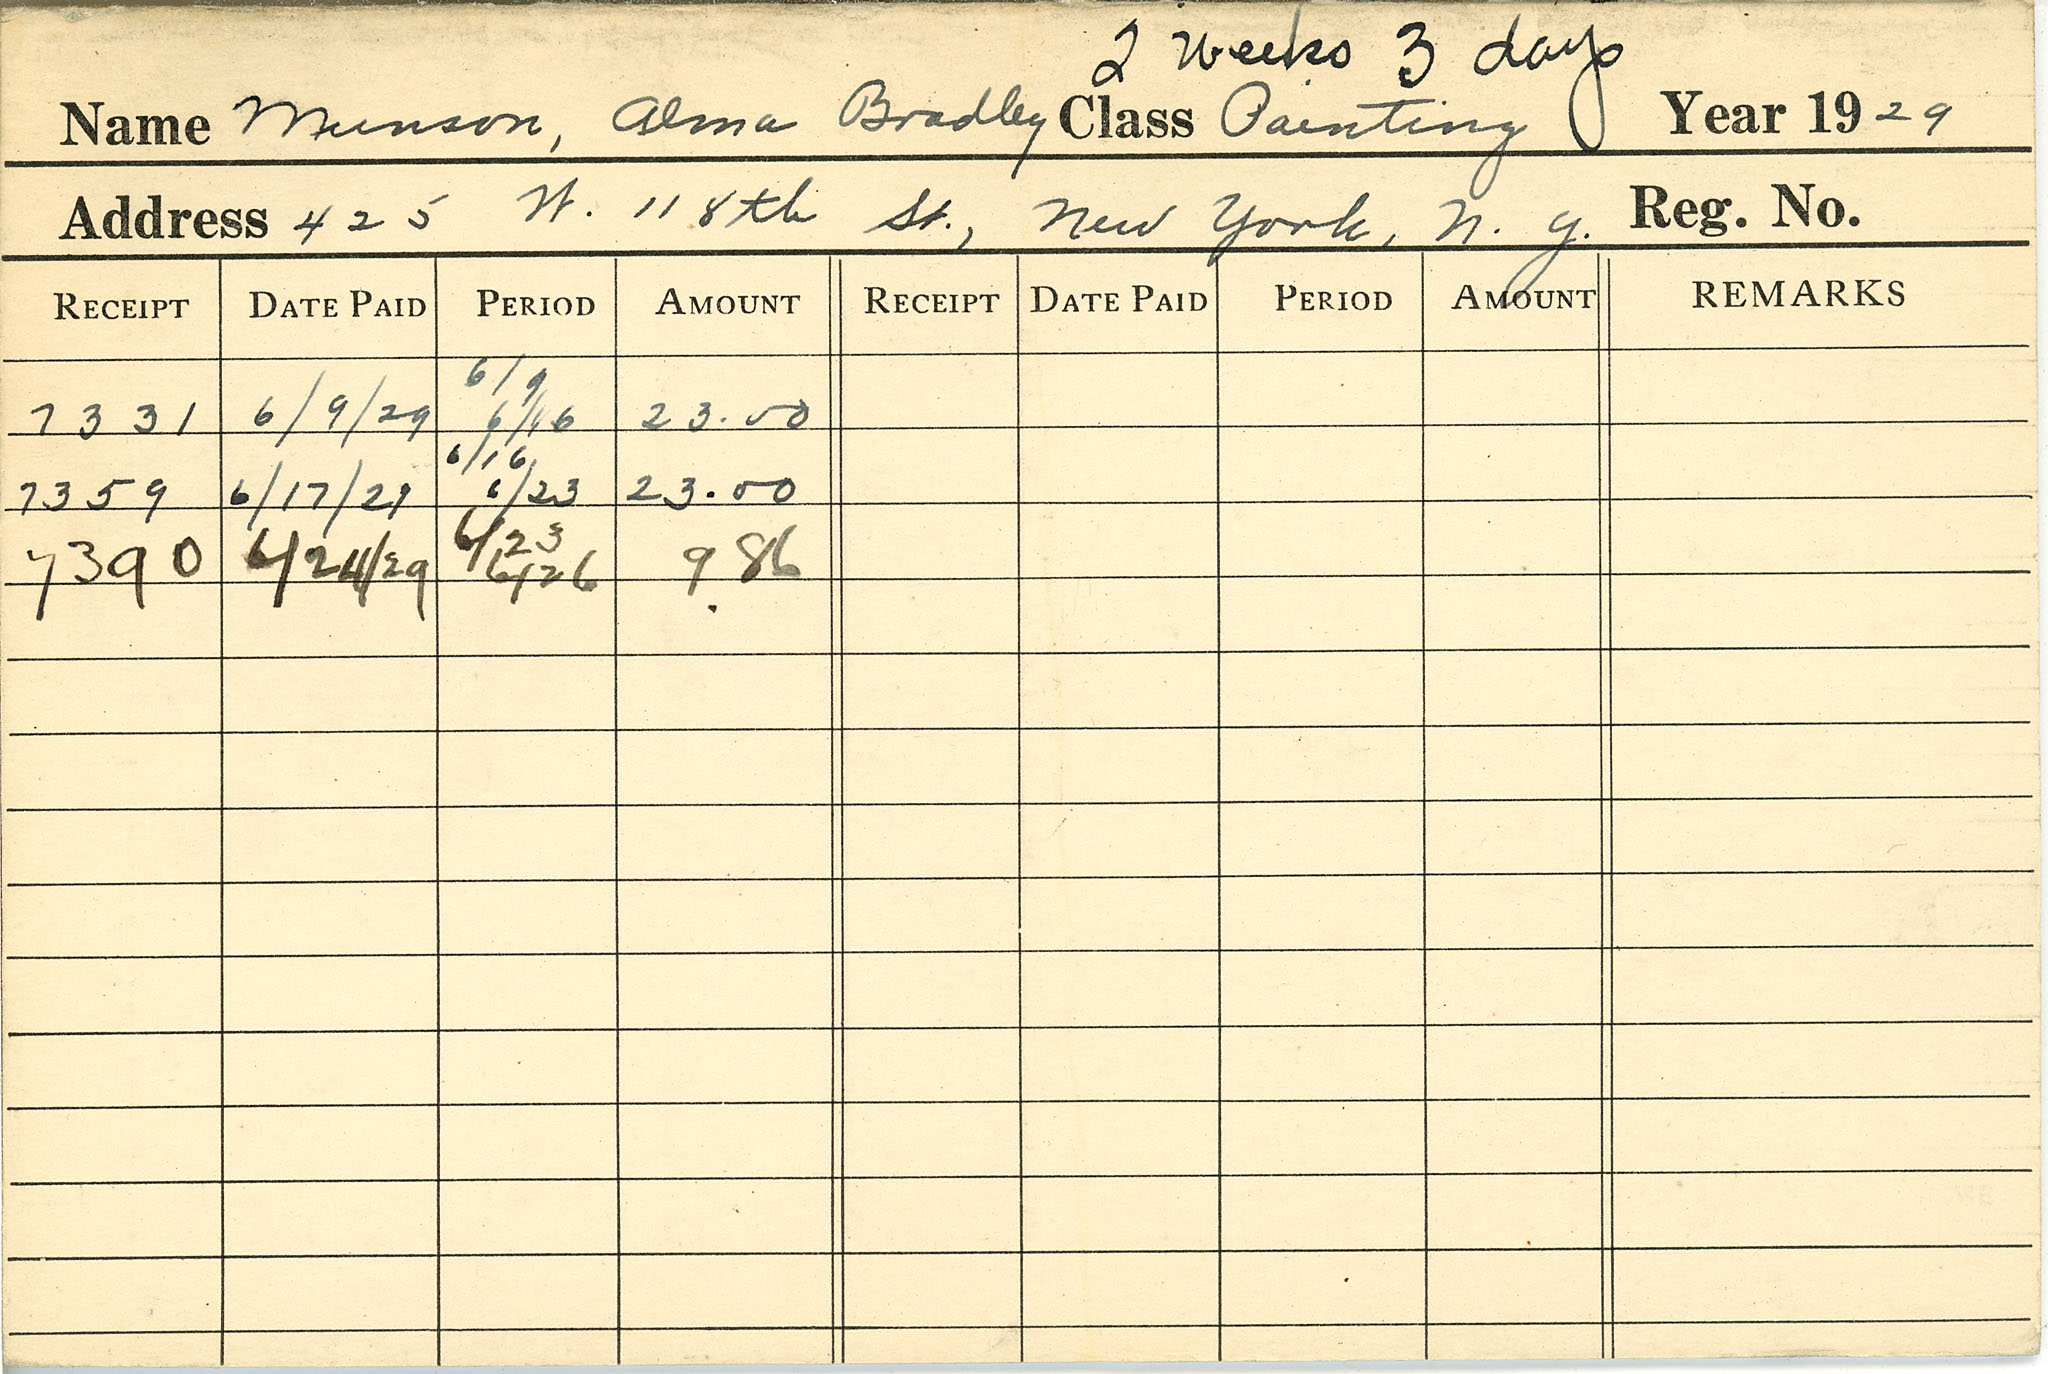 2 weeks 3 days
Name Munson, Alma Bradley Class Painting Year 1929
Address 425 W. 118th St., New York, N. Y. Reg. No.
RECEIPT DATE PAID PERIOD AMOUNT RECEIPT DATE PAID PERIOD AMOUNT REMARKS
6/9
7331 6/9/29 6/16 23.00
6/16
7359 6/17/29 6/23 23.00
6/23
7390 6/24/29 6/26 9.86